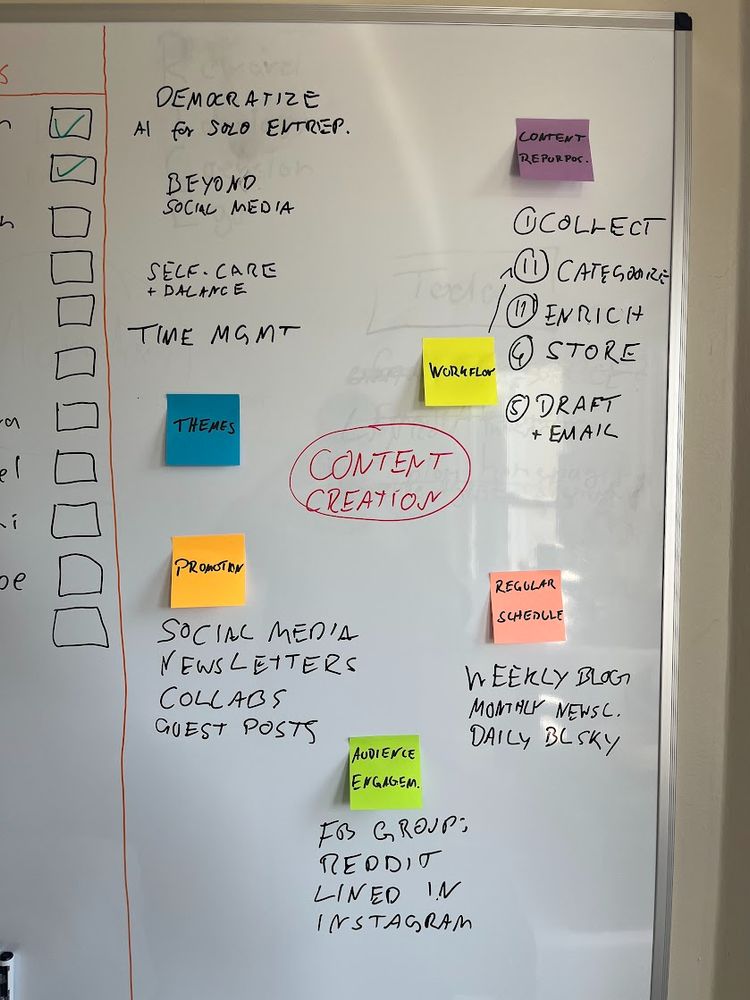 DEMOCRATIZE
AI for SOLO ENTREP.
BEYOND
SOCIAL MEDIA
SELF-CARE
+ BALANCE
TIME MGMT
THEMES
CONTENT
REPURPOS.
① COLLECT
⑪ CATEGORIZE
ENRICH
STORE
⑤ DRAFT
+ EMAIL
WORKFLOW
CONTENT
CREATION
PROMOTION
SOCIAL MEDIA
NEWSLETTERS
COLLABS
GUEST POSTS
REGULAR
SCHEDULE
WEEKLY BLOG
MONTHLY NEWSL.
DAILY BLSKY
AUDIENCE
ENGAGEM.
FB GROUP:
REDDIT
LINED IN
INSTAGRAM